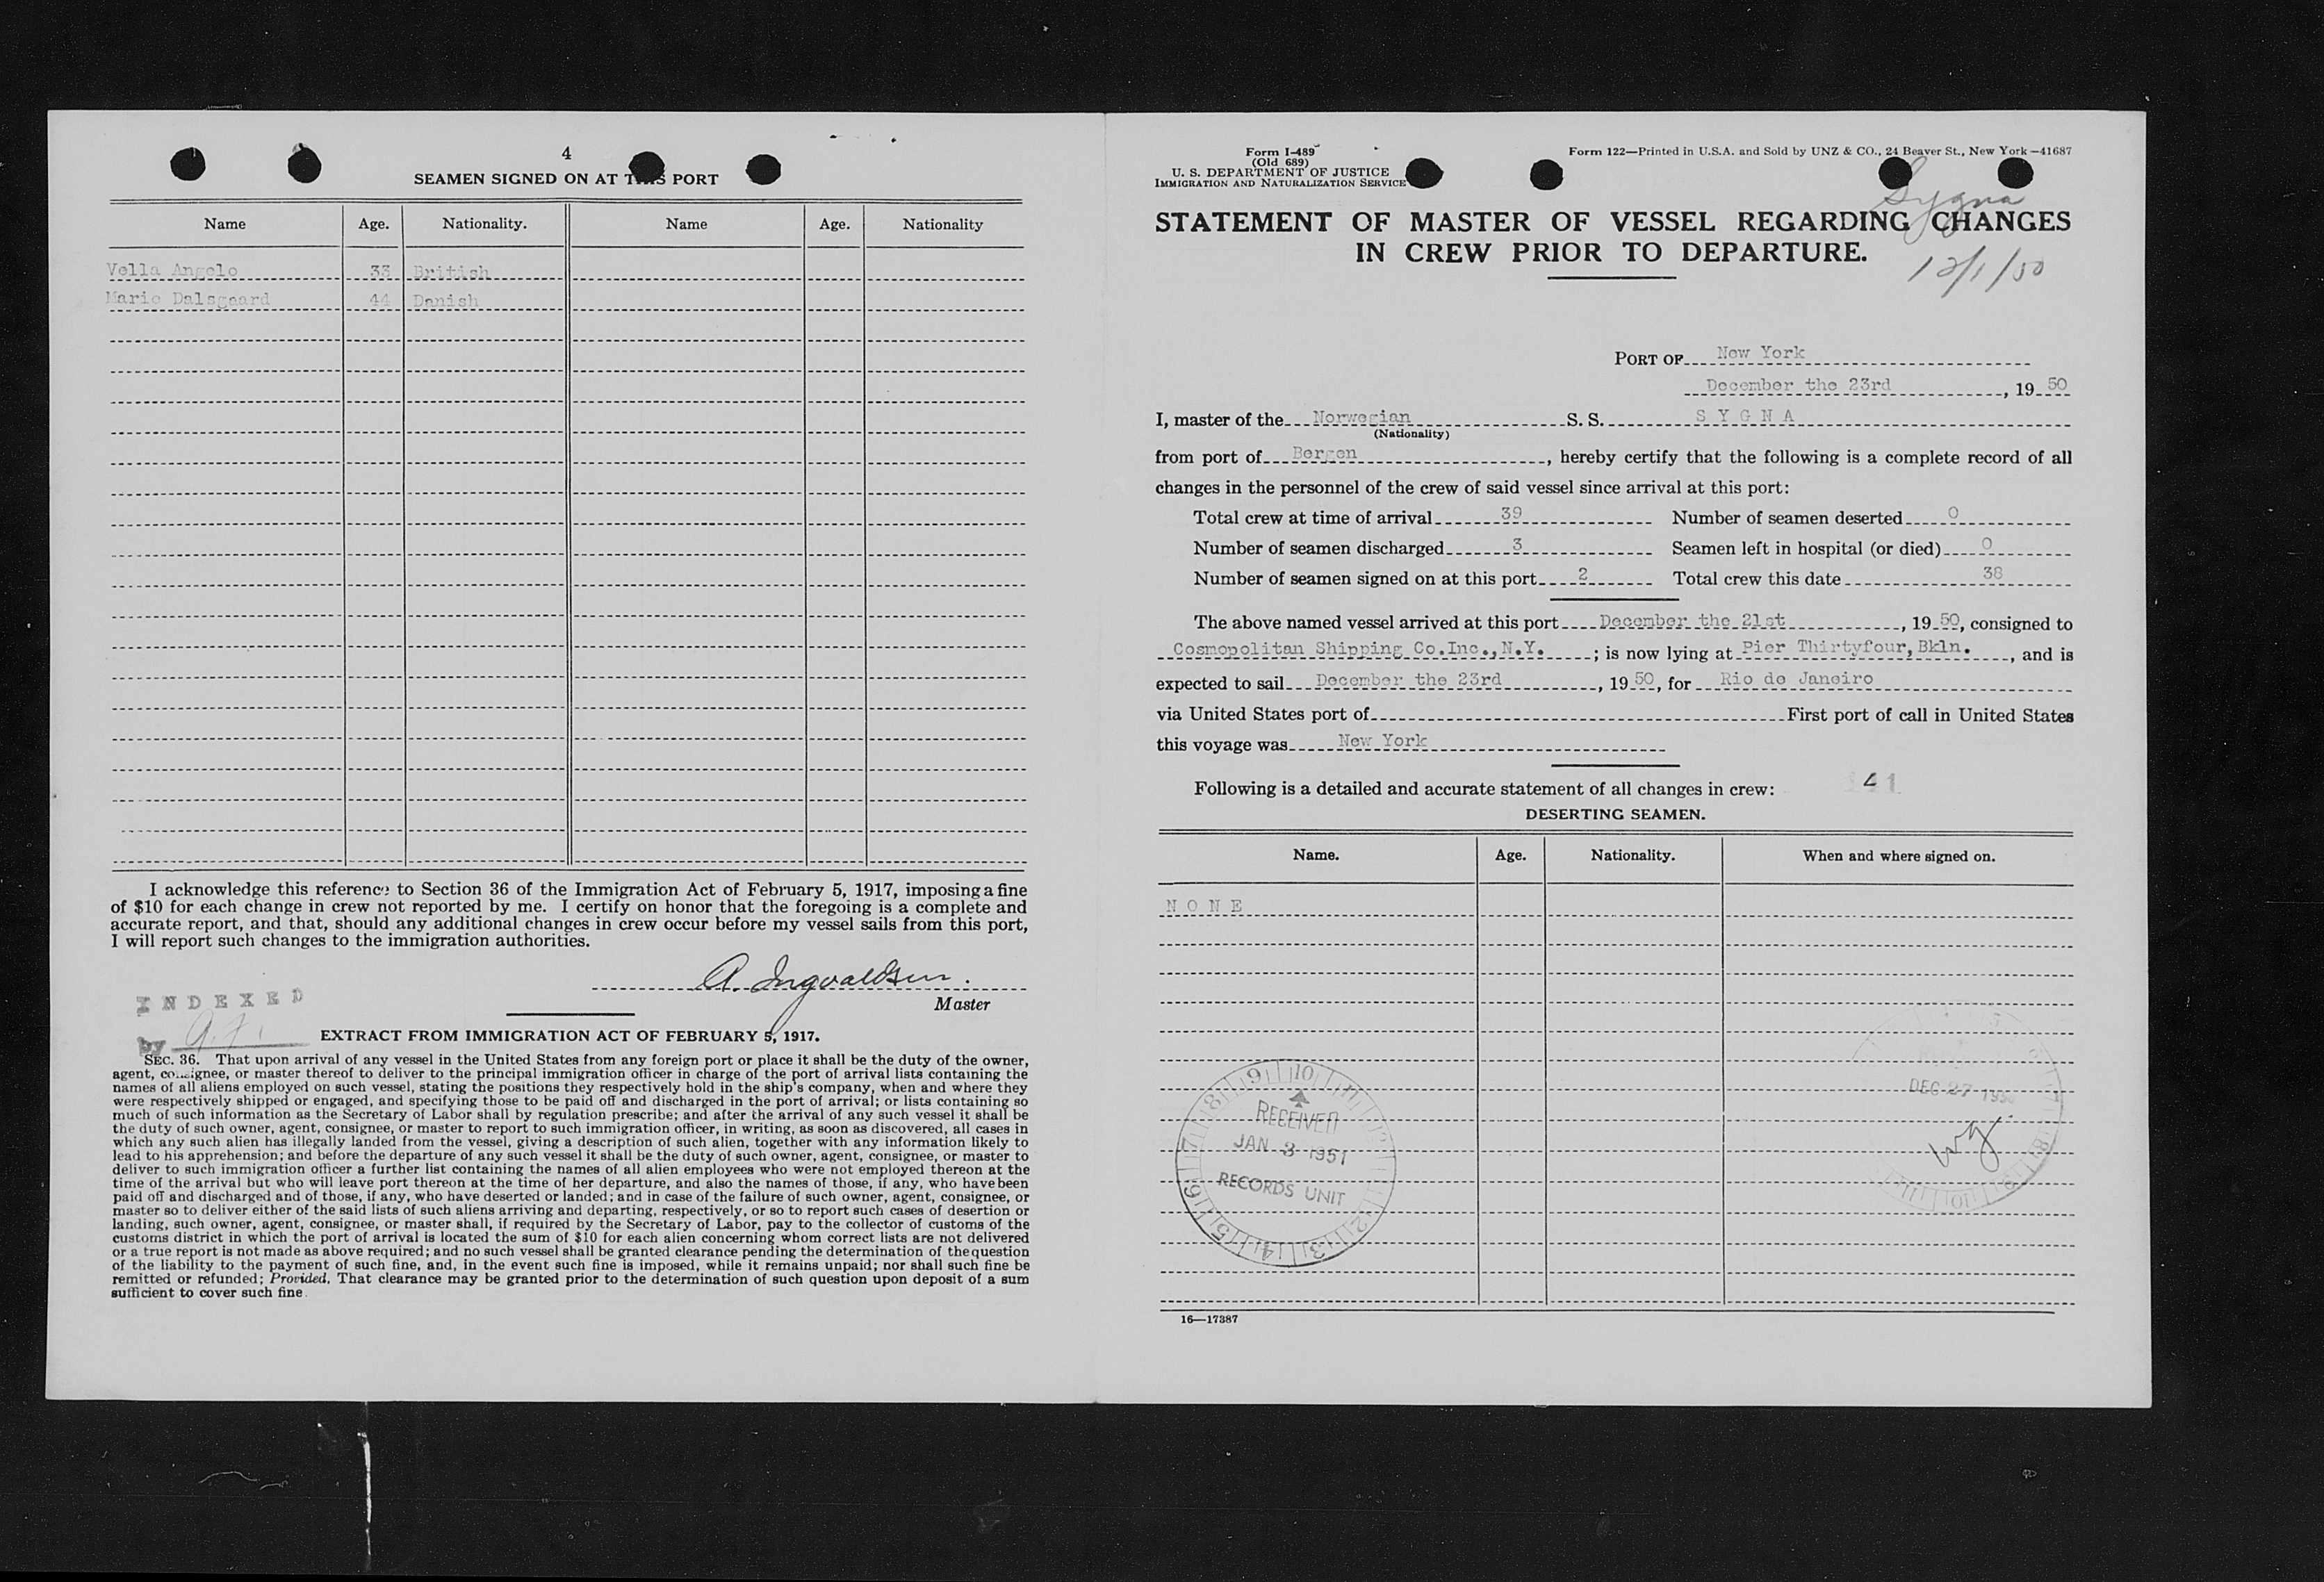 4
SEAMEN SIGNED ON AT THIS PORT
Name Age. Nationality. Name Age. Nationality
Vella Angelo 33 British
Marie Dalsgaard 44 Danish
I acknowledge this reference to Section 36 of the Immigration Act of February 5, 1917, imposing a fine
of $10 for each change in crew not reported by me. I certify on honor that the foregoing is a complete and
accurate report, and that, should any additional changes in crew occur before my vessel sails from this port,
I will report such changes to the immigration authorities.
A. Ingvaldsen.
Master
INDEXED
by
EXTRACT FROM IMMIGRATION ACT OF FEBRUARY 5, 1917.
SEC. 36. That upon arrival of any vessel in the United States from any foreign port or place it shall be the duty of the owner,
agent, consignee, or master thereof to deliver to the principal immigration officer in charge of the port of arrival lists containing the
names of all aliens employed on such vessel, stating the positions they respectively hold in the ship's company, when and where they
were respectively shipped or engaged, and specifying those to be paid off and discharged in the port of arrival; or lists containing so
much of such information as the Secretary of Labor shall by regulation prescribe; and after the arrival of any such vessel it shall be
the duty of such owner, agent, consignee, or master to report to such immigration officer, in writing, as soon as discovered, all cases in
which any such alien has illegally landed from the vessel, giving a description of such alien, together with any information likely to
lead to his apprehension; and before the departure of any such vessel it shall be the duty of such owner, agent, consignee, or master to
deliver to such immigration officer a further list containing the names of all alien employees who were not employed thereon at the
time of the arrival but who will leave port thereon at the time of her departure, and also the names of those, if any, who have been
paid off and discharged and of those, if any, who have deserted or landed; and in case of the failure of such owner, agent, consignee, or
master so to deliver either of the said lists of such aliens arriving and departing, respectively, or so to report such cases of desertion or
landing, such owner, agent, consignee, or master shall, if required by the Secretary of Labor, pay to the collector of customs of the
customs district in which the port of arrival is located the sum of $10 for each alien concerning whom correct lists are not delivered
or a true report is not made as above required; and no such vessel shall be granted clearance pending the determination of the question
of the liability to the payment of such fine, and, in the event such fine is imposed, while it remains unpaid; nor shall such fine be
remitted or refunded; Provided, That clearance may be granted prior to the determination of such question upon deposit of a sum
sufficient to cover such fine.
Form I-489
(Old 689)
U. S. DEPARTMENT OF JUSTICE
IMMIGRATION AND NATURALIZATION SERVICE
Form 122—Printed in U.S.A. and Sold by UNZ & CO., 24 Beaver St., New York—41687
Sygna
STATEMENT OF MASTER OF VESSEL REGARDING CHANGES
IN CREW PRIOR TO DEPARTURE.
12/1/50
PORT OF New York
December the 23rd, 19 50
I, master of the Norwegian S. S. S Y G N A
(Nationality)
from port of Bergen, hereby certify that the following is a complete record of all
changes in the personnel of the crew of said vessel since arrival at this port:
Total crew at time of arrival 39 Number of seamen deserted 0
Number of seamen discharged 3 Seamen left in hospital (or died) 0
Number of seamen signed on at this port 2 Total crew this date 38
The above named vessel arrived at this port December the 21st, 19 50, consigned to
Cosmopolitan Shipping Co.Inc.,N.Y.; is now lying at Pier Thirtyfour, Bkln., and is
expected to sail December the 23rd, 19 50, for Rio de Janeiro
via United States port of First port of call in United States
this voyage was New York
Following is a detailed and accurate statement of all changes in crew: 41
DESERTING SEAMEN.
Name. Age. Nationality. When and where signed on.
N O N E
RECEIVED
JAN 3 1951
RECORDS UNIT
DEC 27 1950
16—17387